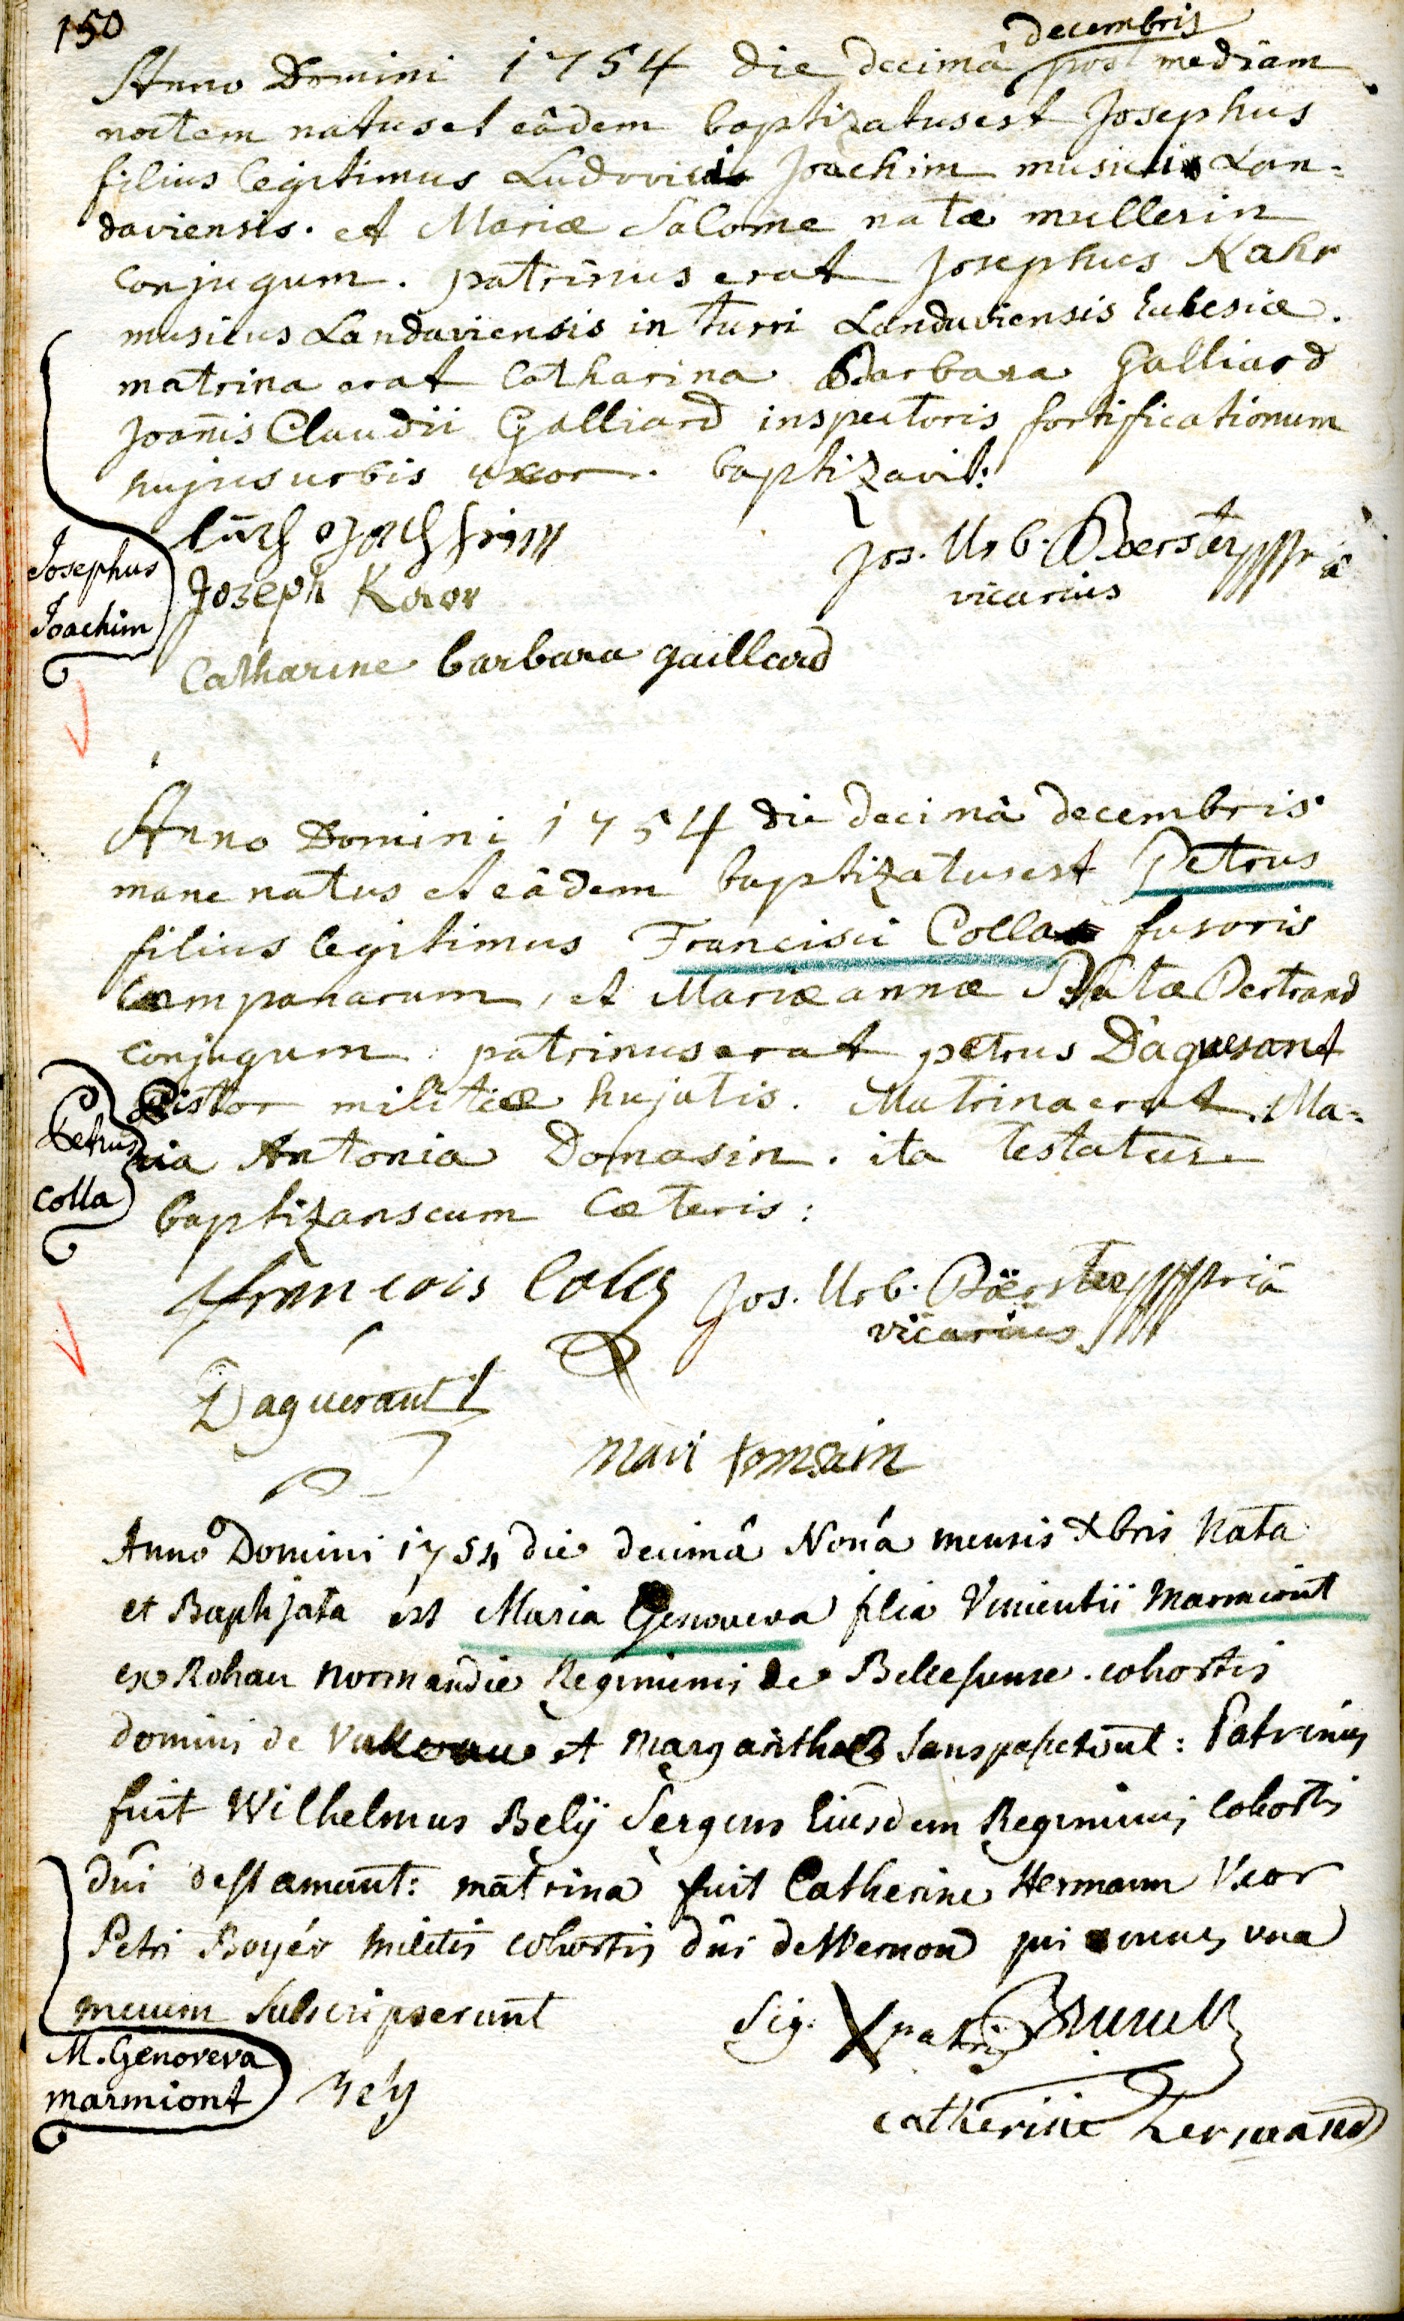 150
decembris
Anno Domini 1754 die decimâ post mediam
noctem natus et eâdem baptizatus est Josephus
filius legitimus Ludovici Joachim musici Lan-
daviensis. et Mariæ Salome natæ mullerin
conjugum. patrinus erat Josephus Kahr
musicus Landaviensis in turri Landaviensis Ecclesiæ.
matrina erat Catharina Barbara Galliard
Joan̄is Claudii Galliard inspectoris fortificationum
hujus urbis uxor. baptizavit:
Jos. Urb. Boerster
Josephus
Joseph
vicarius
Joachim
Catharine barbara gaillard
Anno Domini 1754 die decimâ decembris
mane natus et eâdem baptizatus est Petrus
filius legitimus Francisci Colla fusoris
Campanarum, et Mariæ annæ Natæ Bertrand
conjugum. patrinus erat petrus Daguerant
Pistor militiæ hujatis. Matrina erat Ma-
Petrus
ria Antonia Domasin. ita testatur
Colla
baptizans cum Cæteris:
francois Colla Jos. Urb. Böerster ppriâ
vicarius
Daguerant
mari tomsain
Anno Domini 1754 die decimâ Nonâ mensis Xbris Nata
et Baptizata est Maria Genoveva filia Vincentii Marmiont
ex Rohan Normandie Regiminis de Bellefsunse. cohortis
domini de et Margaritha : Patrinus
fuit Wilhelmus Belÿ Sergens Eiusdem Regiminis Cohortis
dn̄i destamant: matrina fuit Catherine Hermann Uxor
Petri Boyér militis cohortis dn̄i de Wernon qui una
mecum Subscripserunt
Sig. X patris
M. Genoveva
marmiont
Bely
catherine hermand